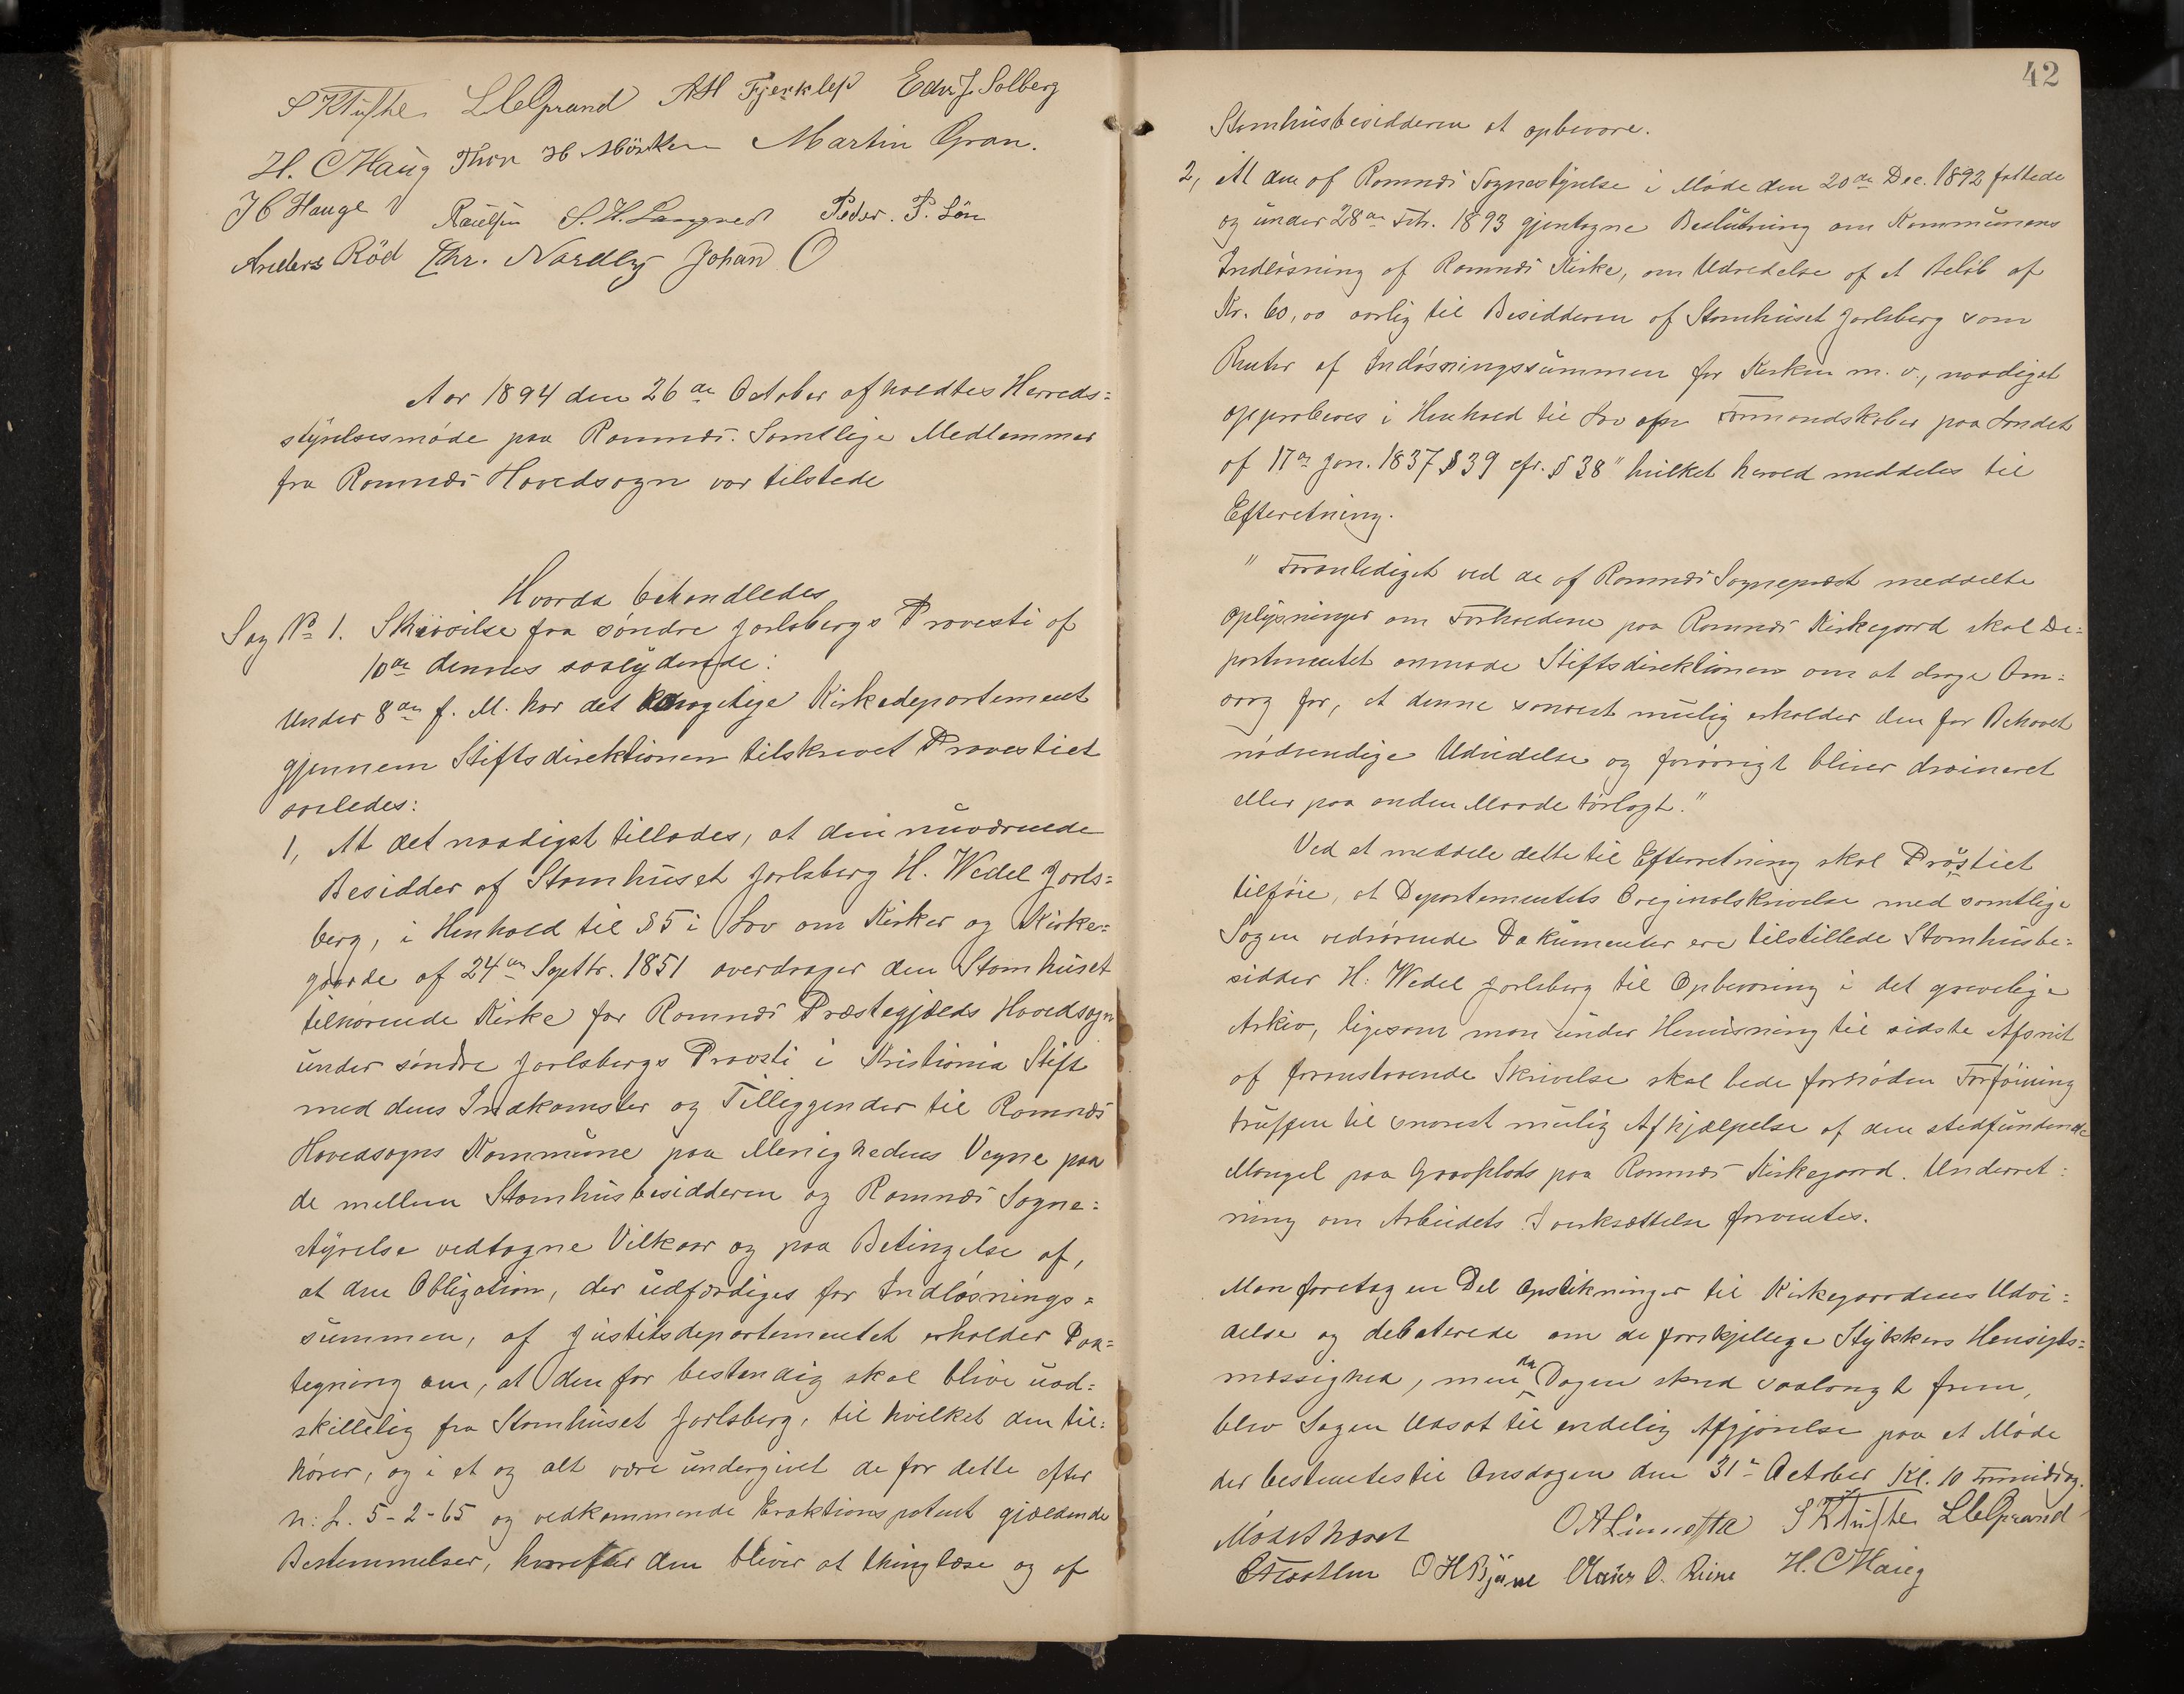 S K Tufte L C Oprand AH Fjerklep Edv J. Solberg
H. C Haug Thor H Mörken Martin Gran.
J C Hauge Paulsen S. H. Langned Peder. P. Lön
Anders Röd Chr. Nordby Johan O
Aar 1894 den 26de October afholdtes Herreds=
styrelsesmøde paa Ramnæs. Samtlige Medlemmer
fra Ramnæs Hovedsogn var tilstede
Hvorda behandledes
Sag No 1. Skrivelse fra søndre Jarlsbergs Provsti af
10de dennes saalydende:
Under 8de f. M. har det kongelige Kirkedepartement
gjennem Stiftsdirektionen tilskrevet Provstiet
saaledes:
1, At det naadigst tillades, at den nuværende
Besidder af Stamhuset Jarlsberg H. Wedel Jarls=
berg, i Henhold til § 5 i Lov om Kirker og Kirke=
gaarde af 24de Septbr. 1851 overdrager den Stamhuset
tilhørende Kirke for Ramnæs Præstegjælds Hovedsogn
under søndre Jarlsbergs Provsti i Kristiania Stift
med dens Indkomster og Tilliggender til Ramnæs
Hovedsogns Kommune paa Menighedens Vegne paa
de mellem Stamhusbesidderen og Ramnæs Sogne=
styrelse vedtagne Vilkaar og paa Betingelse af,
at den Obligation, der udfærdiges for Indløsnings=
summen, af Justitsdepartementet erholder Paa=
tegning om, at den for bestandig skal blive uad=
skillelig fra Stamhuset Jarlsberg, til hvilket den til=
hører, og i et og alt være undergivet de for dette efter
N: L. 5-2-65 og vedkommende Eraktionspatent gjældende
Bestemmelser, hvorefter den bliver at thinglæse og af
42
Stamhusbesidderen at opbevare.
2, At den af Ramnæs Sognestyrelse i Møde den 20de Dec. 1892 fattede
og under 28de Febr. 1893 gjentagne Beslutning om Kommunens
Indløsning af Ramnæs Kirke, om Udredelse af et Beløb af
Kr. 60,00 aarlig til Besidderen af Stamhuset Jarlsberg som
Renter af Indløsningssummen for Kirken m. v., naadigst
approberes i Henhold til Lov ofr Formandskaber paa Landet
af 17de Jan. 1837 § 39 cfr. § 38" hvilket herved meddeles til
Efteretning.
" Foranlediget ved de af Ramnæs Sognepræst meddelte
Oplysninger om Forholdene paa Ramnæs Kirkegaard skal De=
partementet anmode Stiftsdirektionen om at drage Om=
sorg for, at denne snarest mulig erholder den for Behovet
nødvendige Udvidelse og forøvrigt bliver draineret
eller paa anden Maade tørlagt."
Ved at meddele dette til Efterretning skal Pröstiet
tilføie, at Departementets Originalskrivelse med samtlige
Sagen vedrørende Dokumenter ere tilstillede Stamhusbe=
sidder H: Wedel Jarlsberg til Opbevaring i det grevelige
Arkiv, ligesom man under Henvisning til sidste Afsnit
af foranstaaende Skrivelse skal bede fornøden Forføining
truffen til snarest mulig Afhjælpelse af den stedfundende
Mangel paa Gravplads paa Ramnæs Kirkegaard. Underret=
ning om Arbeidets Iverksættelse forventes.
Man foretog en Del Opstikninger til Kirkegaardens Udvi=
delse og debaterede om de forskjellige Stykkers Hensigts=
mæssighed, men da Dagen skred saalangt frem,
blev Sagen Udsat til endelig Afgjørelse paa et Møde
der bestemtes til Onsdagen den 31te October Kl. 10 Formiddag.
Mødet hævet
O A Linnestad S K Tufte L C Oprand
O H Bjune Hans O. Riise H. C Haug